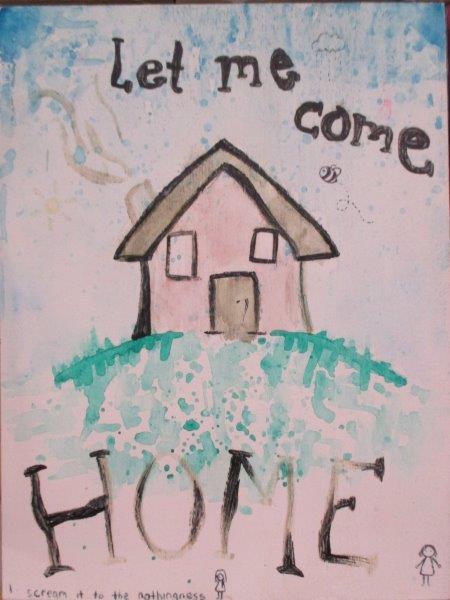 Let me
come
HOME
I scream it to the nothingness